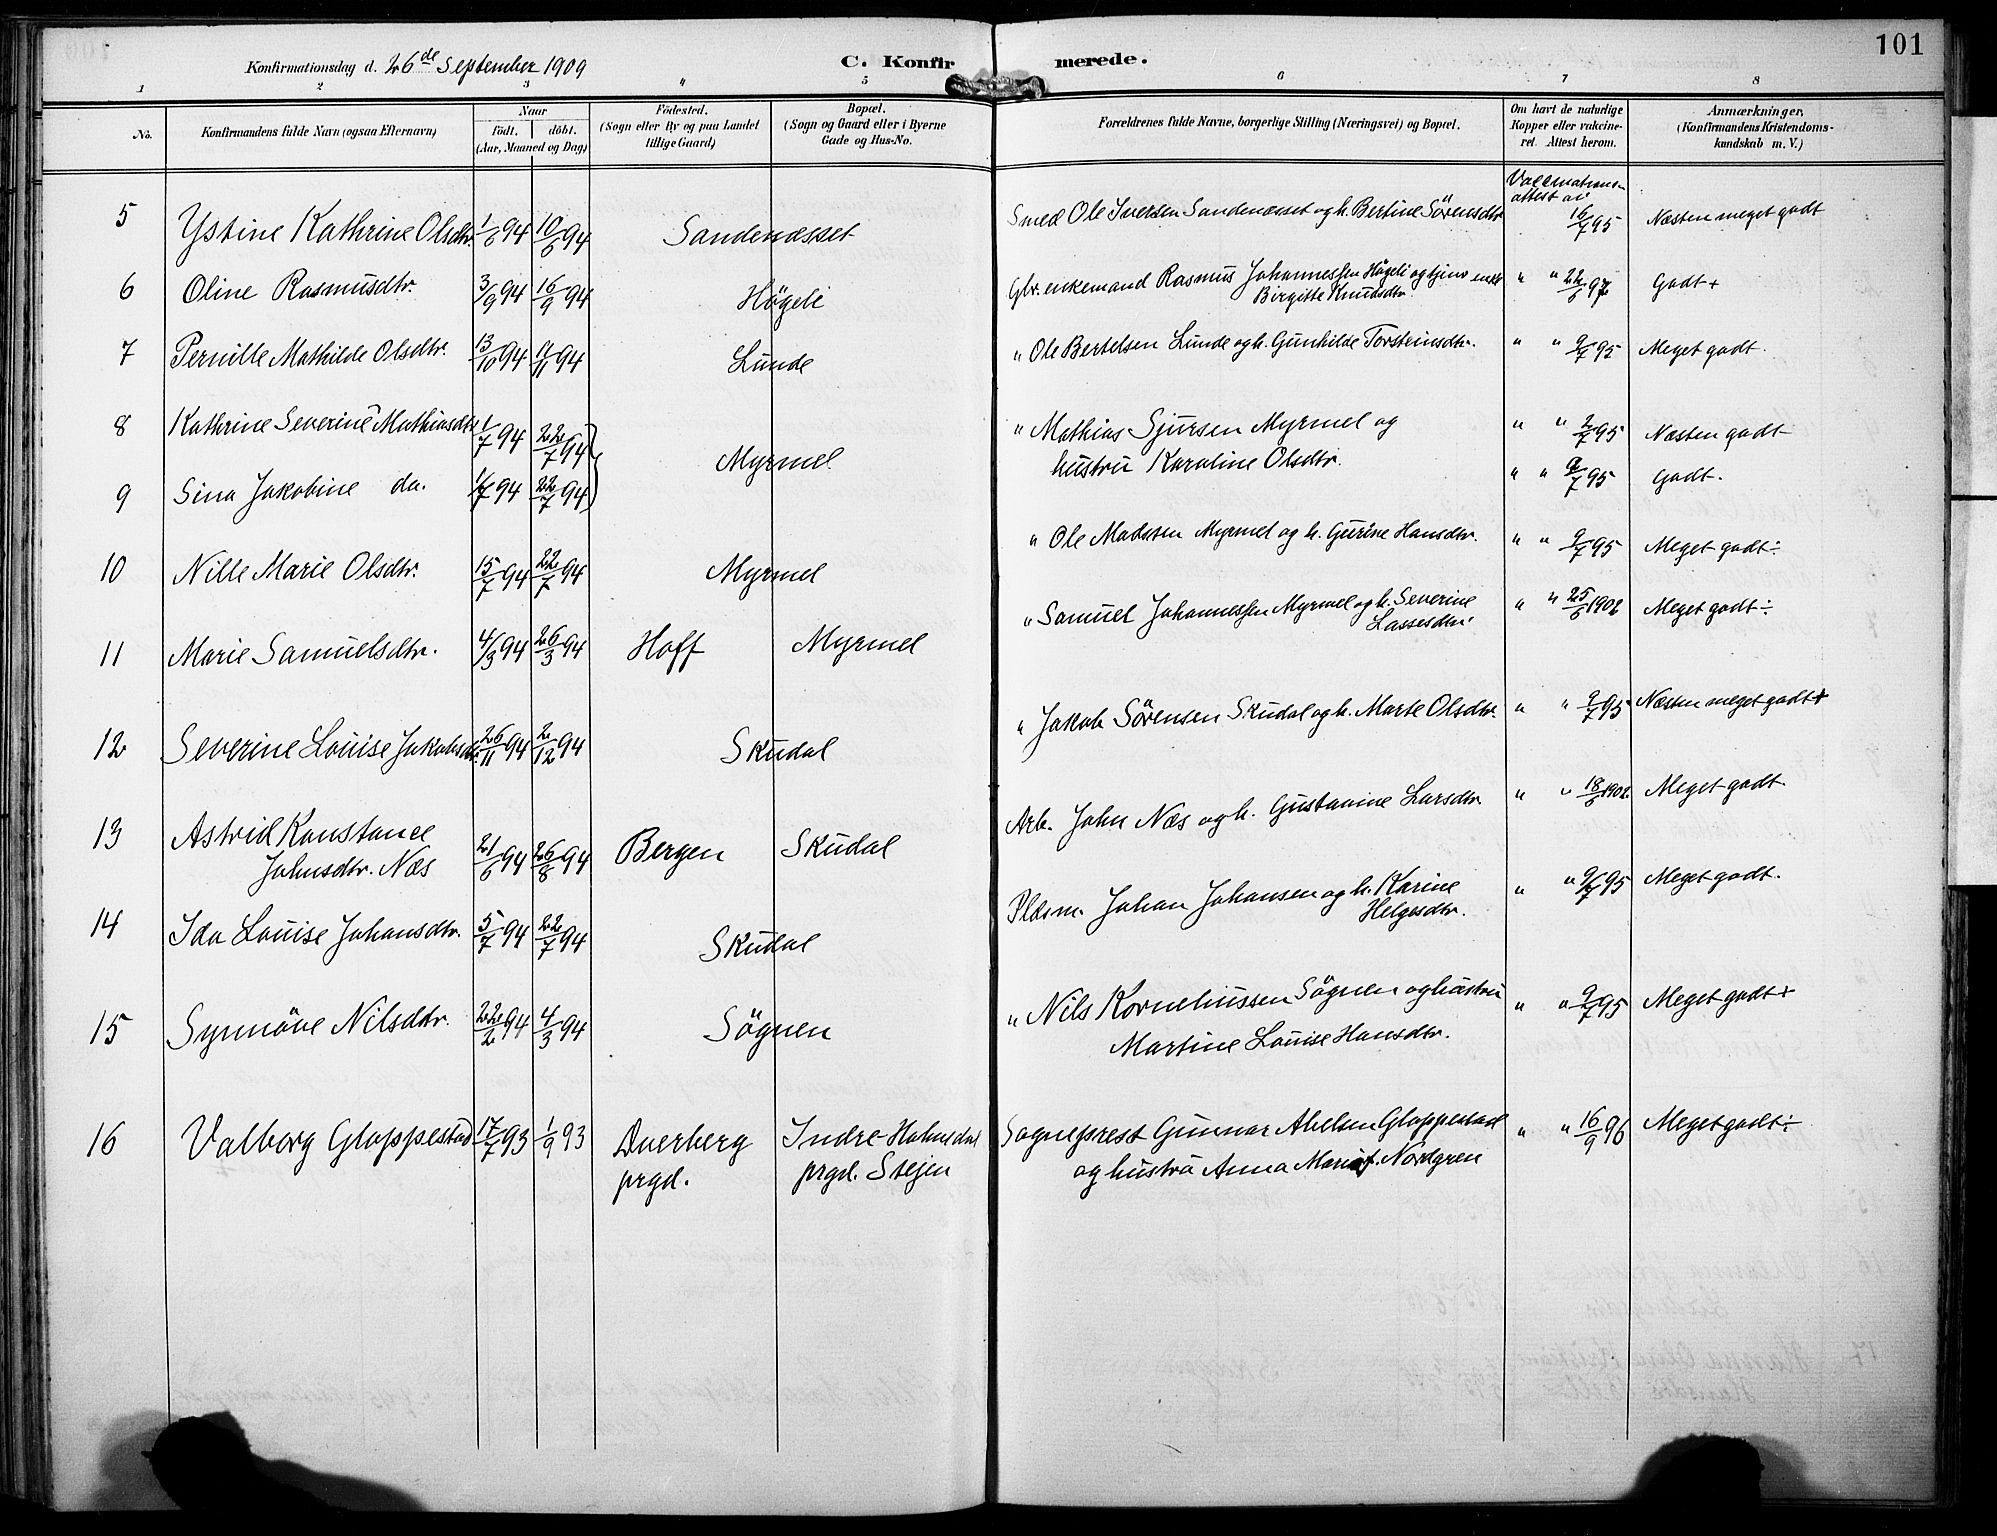 101
Konfirmationsdag d. 26de September 1909
C. Konfirmerede.
1 2 3 4 5 6 7 8
No.
Konfirmandens fulde Navn (ogsaa Efternavn)
Naar
födt. döbt.
(Aar, Maaned og Dag)
Födested.
(Sogn eller By og paa Landet
tillige Gaard)
Bopæl.
(Sogn og Gaard eller i Byerne
Gade og Hus-No.
Forældrenes fulde Navne, borgerlige Stilling (Næringsvei) og Bopæl.
Om havt de naturlige
Kopper eller vakcine-
ret. Attest herom.
Anmærkninger,
(Konfirmandens Kristendoms-
kundskab m. V.)
Vaccinations-
attest av
5 Ystine Kathrine Olsdtr. 1/6 94 10/6 94 Sandenæsset Smed Ole Iversen Sandenæsset og h. Bertine Sörensdtr 16/7 95 Næsten meget godt
6 Oline Rasmusdtr. 3/9 94 16/9 94 Högeli Gbr. enkemand Rasmus Johannessen Högeli og tjener enke
Birgitte Knudsdtr. " " 22/6 97 Godt +
7 Pernille Mathilde Olsdtr. 13/10 94 11/11 94 Lunde " Ole Bertelsen Lunde og h. Gunhilde Torsteinsdtr. " " 9/7 95 Meget godt.
8 Kathrine Severine Mathiasdtr 1/7 94 22/7 94 Myrmel " Mathias Sjursen Myrmel og " " 2/7 95 Næsten godt
hustru Karoline Olsdtr.
9 Sina Jakobine do. 1/7 94 22/7 94 " " 9/7 95 Godt.
10 Nille Marie Olsdtr. 15/7 94 22/7 94 Myrmel " Ole Madssen Myrmel og h. Gurine Hansdtr. " " 9/7 95 Meget godt ÷
11 Marie Samuelsdtr. 4/3 94 26/3 94 Hoff Myrmel " Samuel Johannessen Myrmel og h. Severine
Lassesdtr. " " 25/6 1902 Meget godt ÷
12 Severine Louise Jakobsdtr. 26/11 94 2/12 94 Skudal " Jakob Sörensen Skudal og h. Marte Olsdtr. " " 9/7 95 Næsten meget godt +
13 Astrid Konstance
Johnsdtr. Næs 21/6 94 26/8 94 Bergen Skudal Arb. John Næs og h. Gustavine Larsdtr. " " 18/6 1902 Meget godt
14 Ida Louise Johansdtr. 5/7 94 22/7 94 Skudal Pladsm. Johan Johansen og h. Karine
Helgesdtr. " " 9/7 95 Meget godt.
15 Synnöve Nilsdtr. 22/2 94 4/3 94 Sögnen " Nils Korneliussen Sögnen og hustru
Martine Louise Hansdtr. " " 9/7 95 Meget godt +
16 Valborg Gloppestad 17/7 93 1/9 93 Dverberg
prgd. Indre-Holmedal
prgd. Stejen Sogneprest Gunnar Abelsen Gloppestad
og hustru Anna Marie f. Nordgren " " 16/9 96 Meget godt ÷